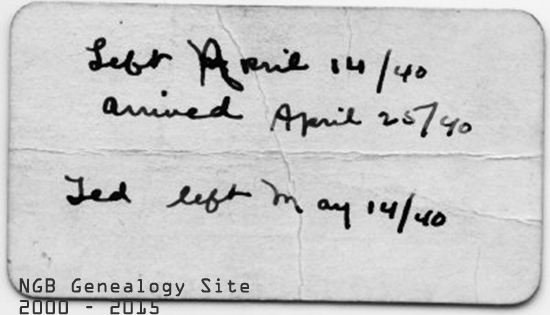 Left April 14/40
arrived April 25/40
Ted left May 14/40
NGB Genealogy Site
2000 - 2015